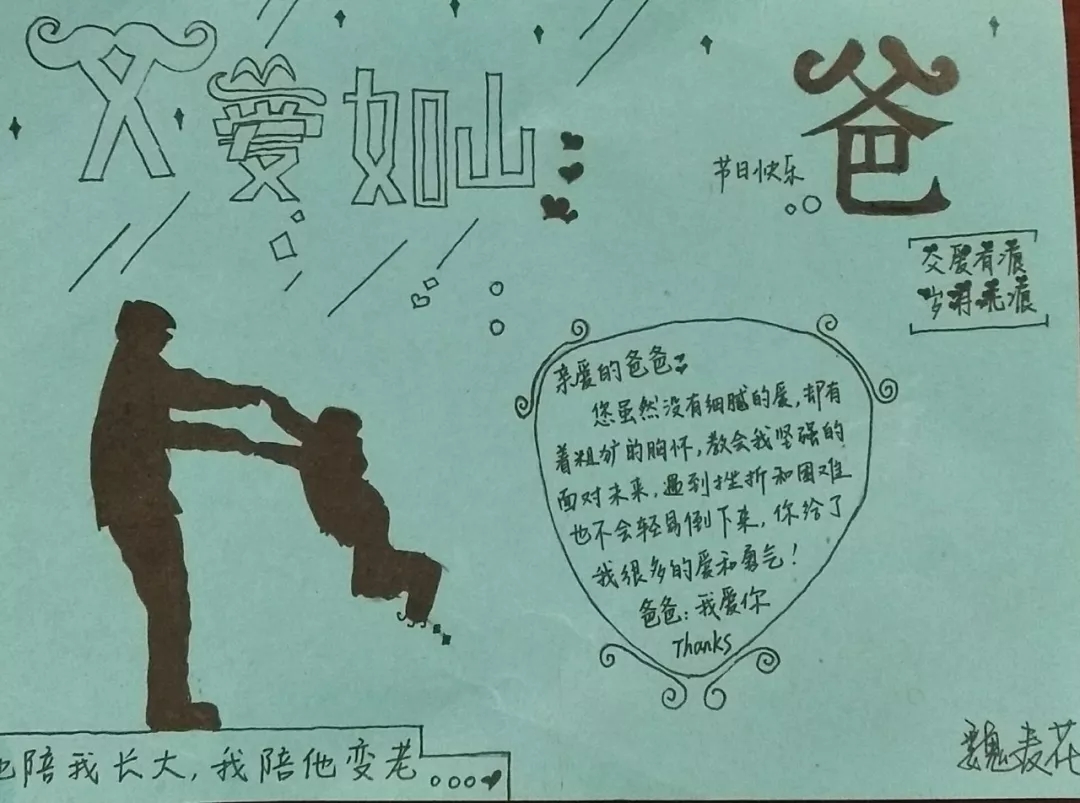 父爱如山
爸
节日快乐
父爱有痕
岁月无痕
亲爱的爸爸
您虽然没有细腻的爱,却有
着粗犷的胸怀,教会我坚强的
面对未来,遇到挫折和困难
也不会轻易倒下来,你给了
我很多的爱和勇气!
爸爸:我爱你
Thanks
他陪我长大,我陪他变老
魏麦花